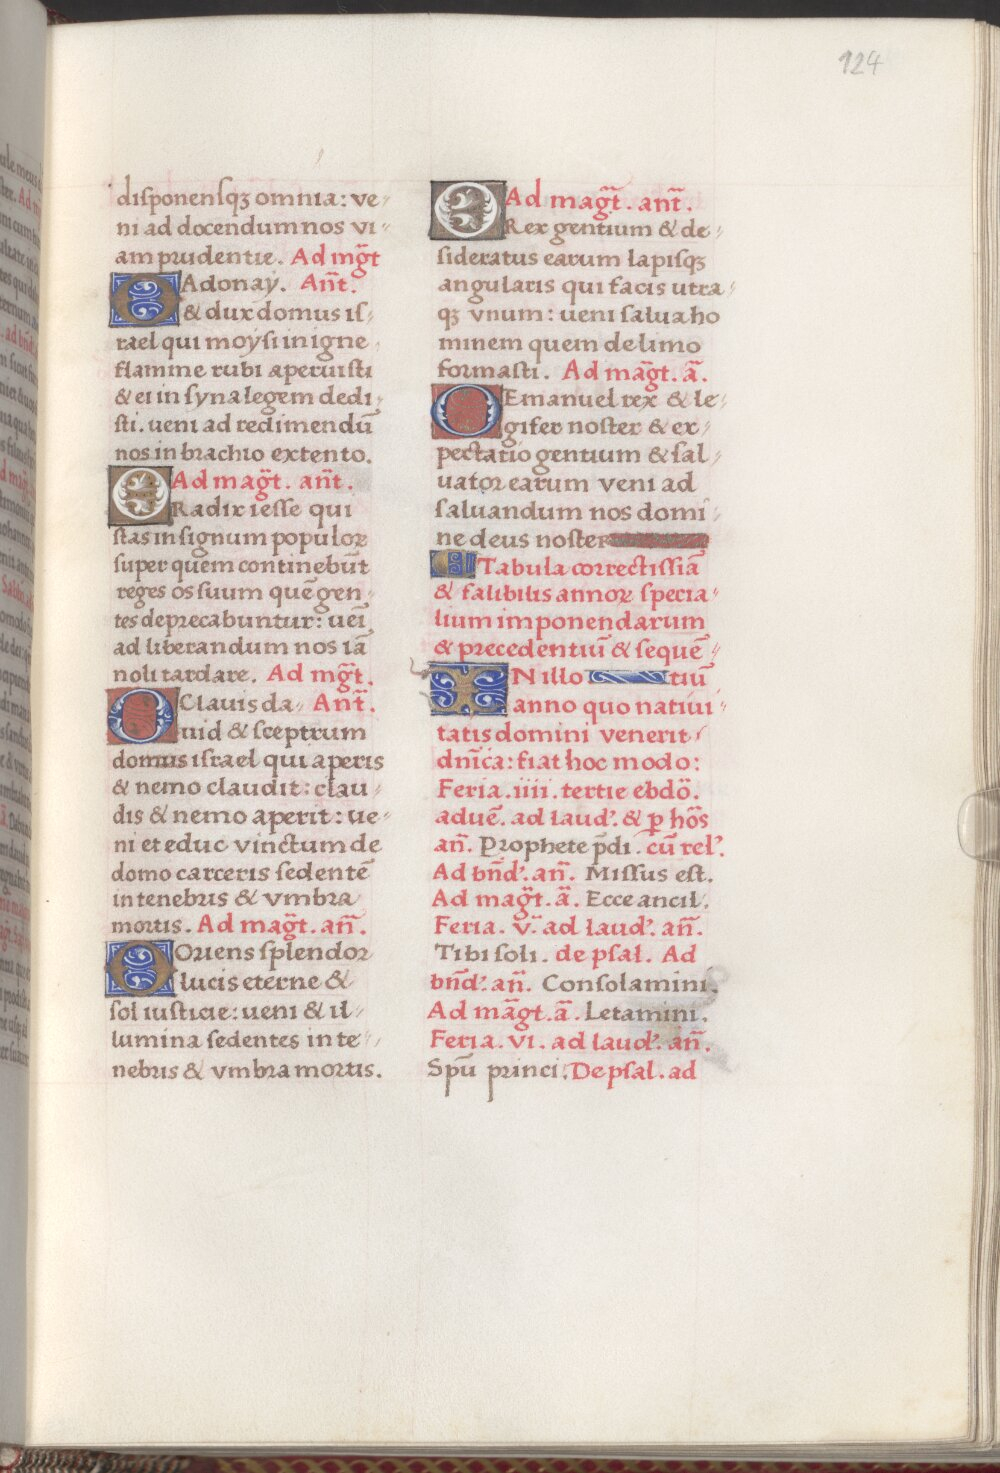 124
disponensqꝫ omnia: ve⸗
ni ad docendum nos vi⸗
am prudentie. Ad mgt̃
O Adonaẏ. Añt.
& dux domus is⸗
rael qui moẏsi in igne
flamme rubi aperuisti
& ei in syna legem dedi⸗
sti. veni ad redimendū
nos in brachio extento.
Ad magt̃. añt.
O Radix iesse qui
stas in signum populoꝝ
super quem continebūt
reges os suum quē gen⸗
tes deprecabuntur: uēi
ad liberandum nos iā
noli tardare. Ad mgt̃.
O Clauis da⸗ Añt.
uid & sceptrum
domus israel qui aperis
& nemo claudit: clau⸗
dis & nemo aperit: ue⸗
ni et educ vinctum de
domo carceris sedentē
in tenebris & vmbra
mortis. Ad magt̃. añ.
O Oriens splendor
lucis eterne &
sol iusticie: ueni & il⸗
lumina sedentes in te⸗
nebris & vmbra mortis.
Ad magt̃. añt.
O Rex gentium & de⸗
sideratus earum lapisqꝫ
angularis qui facis utra⸗
qꝫ vnum: ueni salua ho
minem quem de limo
formasti. Ad magt̃. ā.
O Emanuel rex & le⸗
gifer noster & ex⸗
pectatio gentium & sal⸗
uator earum veni ad
saluandum nos domi⸗
ne deus noster
Tabula correctissiā
& falibilis annoꝝ specia⸗
lium imponendarum
& precedentiū & sequē⸗
IN illo tiū
anno quo natiui⸗
tatis domini venerit
dnīca: fiat hoc modo:
Feria .iiii. tertie ebdō.
aduē. ad laud'. & p hōs
añ. Prophete p̄di. cū rel'.
Ad bñd'. añ. Missus est.
Ad magt̃. ā. Ecce ancil.
Feria. v. ad laud'. añ.
Tibi soli. de psal. Ad
bñd'. añ. Consolamini.
Ad māgt. ā. Letamini.
Feria. vi. ad laud'. añ.
Spū princi. De psal. ad